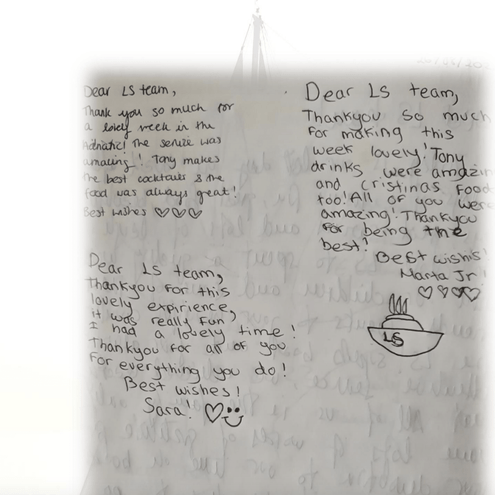 Dear LS team,
Thank you so much for
a lovely week in the
Adriatic! The service was
amazing! Tony makes
the best cocktails & the
food was always great!
Best wishes ♡♡♡
Dear LS team,
Thankyou for this
lovely expirience,
it was really fun
I had a lovely time!
Thankyou for all of you
For everything you do!
Best wishes!
Sara! ♡
Dear LS team,
Thankyou so much
for making this
week lovely! Tony
drinks were amazin
and cristinas food
too! All of you were
amazing! Thankyou
for being the
best!
Best wishis!
Marta Jr!
♡♡♡♡
LS